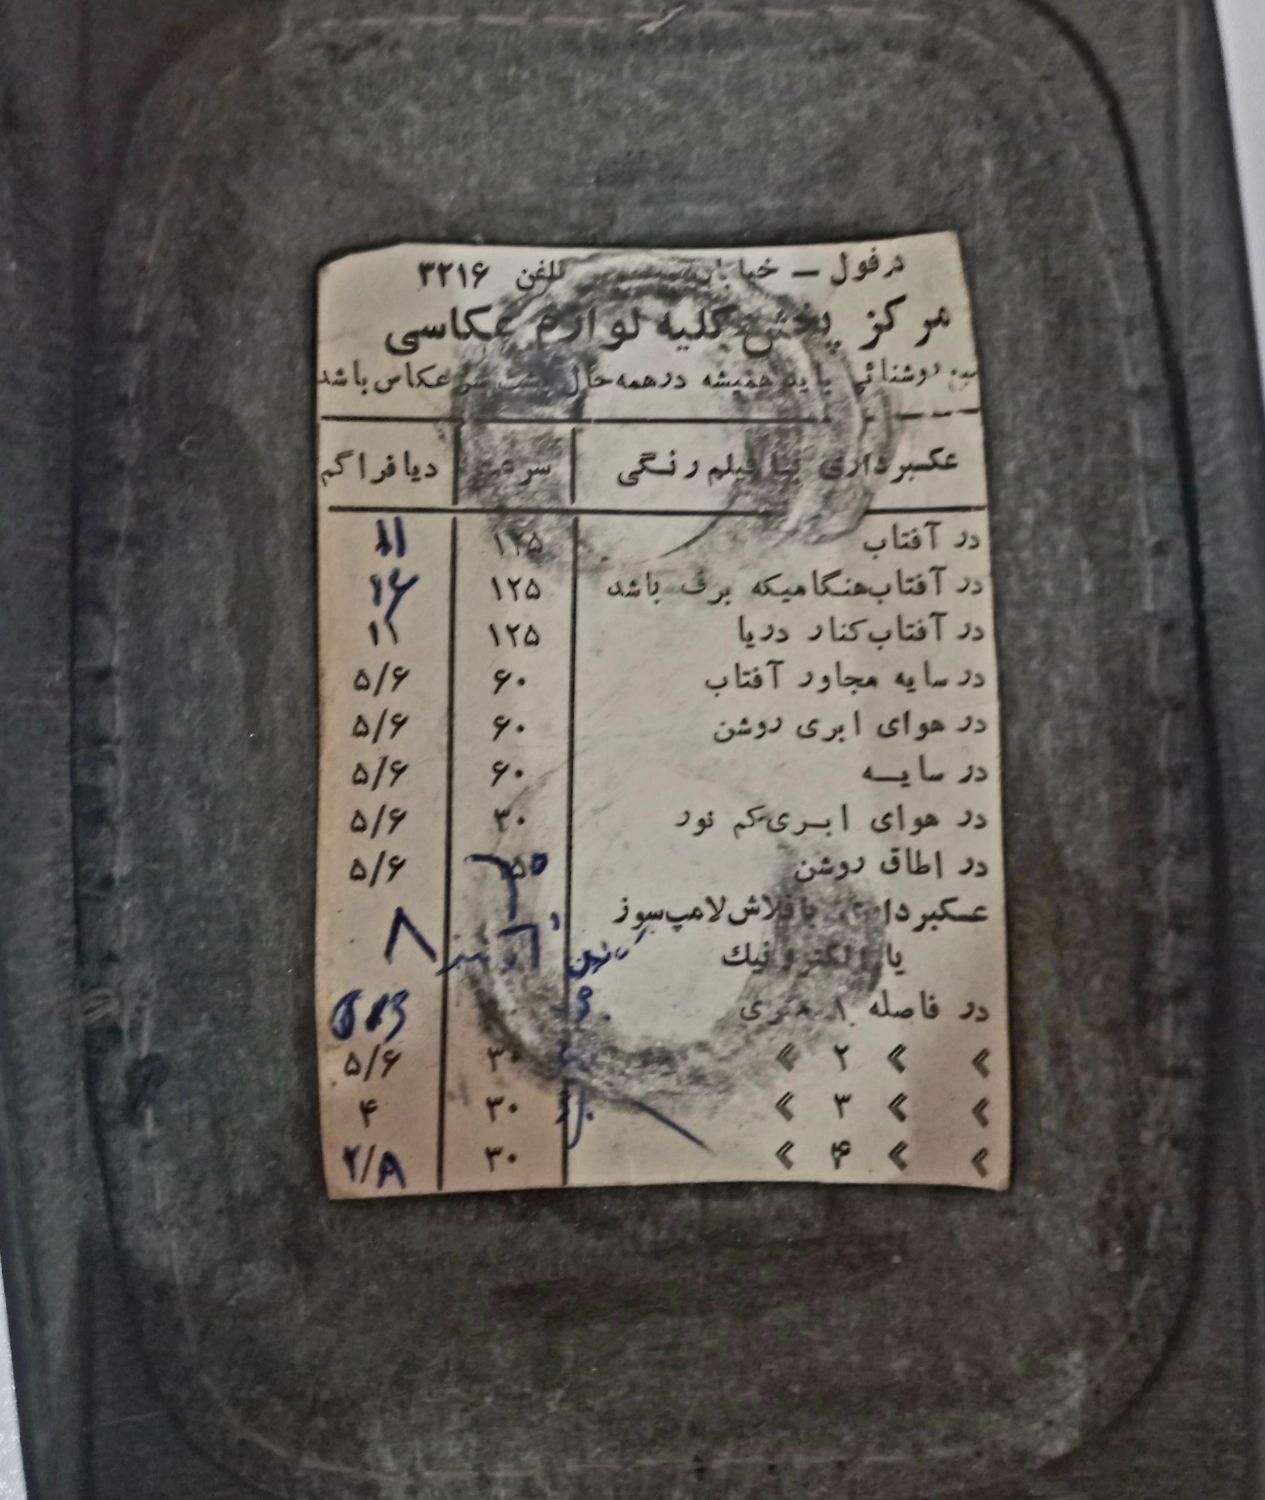 دزفول – خیابان تلفن ۳۲۱۶
مرکز پخش کلیه لوازم عکاسی
روشنائی باید همیشه درهمه حال پشت سر عکاس باشد
عکسبرداری با فیلم رنگی سرعت دیافراگم
در آفتاب ۱۲۵ ۱۱
در آفتاب هنگامیکه برف باشد ۱۲۵ ۱۶
در آفتاب کنار دریا ۱۲۵ ۱۱
در سایه مجاور آفتاب ۶۰ ۵/۶
در هوای ابری روشن ۶۰ ۵/۶
در سایــه ۶۰ ۵/۶
در هوای ابـری کم نور ۳۰ ۵/۶
در اطاق روشن ۵/۶
عـکبرداری با فلاش لامپ سوز ۸
یا الکترونیك
در فاصله ۱ متری
» » ۲ » ۳۰ ۵/۶
» » ۳ » ۳۰ ۴
» » ۴ » ۳۰ ۲/۸